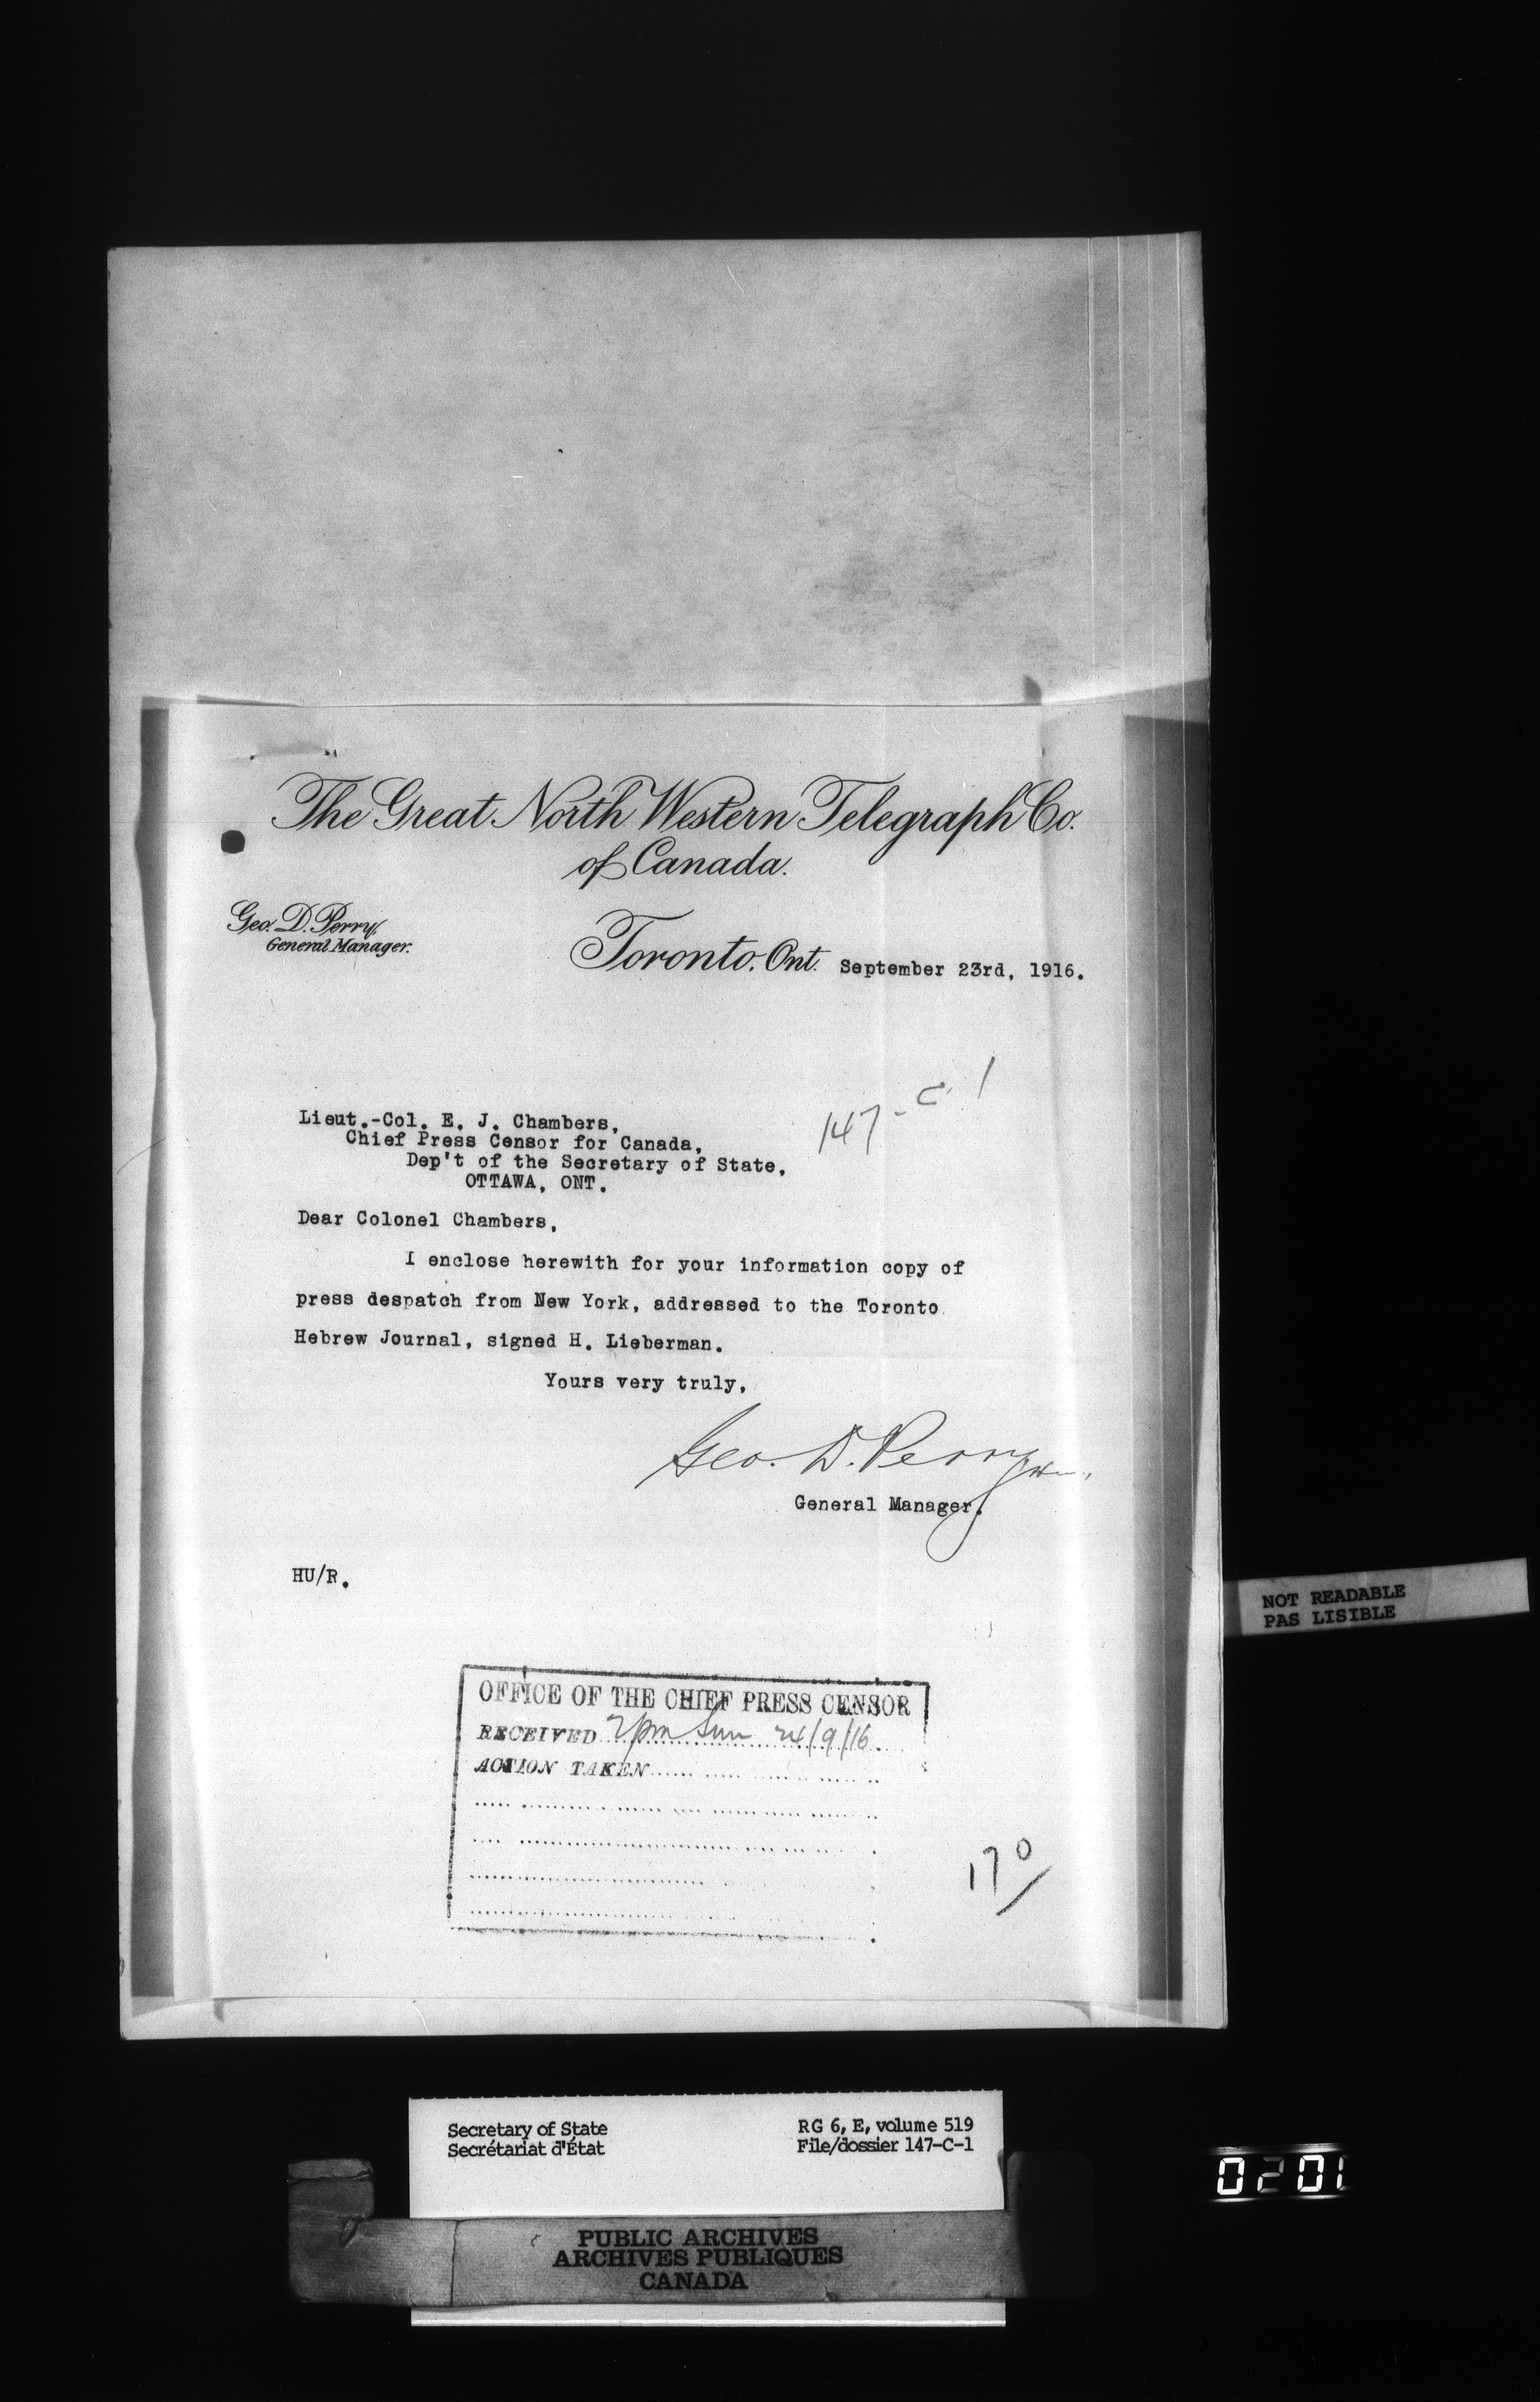 The Great North Western Telegraph Co.
of Canada.
Geo. D. Perry,
General Manager.
Toronto, Ont. September 23rd, 1916.
147-C-1
Lieut.-Col. E. J. Chambers,
Chief Press Censor for Canada,
Dep't of the Secretary of State,
OTTAWA, ONT.
Dear Colonel Chambers,
I enclose herewith for your information copy of
press despatch from New York, addressed to the Toronto
Hebrew Journal, signed H. Lieberman.
Yours very truly,
Geo. D. Perry
General Manager.
HU/R.
NOT READABLE
PAS LISIBLE
OFFICE OF THE CHIEF PRESS CENSOR
RECEIVED 2pm Sun 24/9/16
ACTION TAKEN
170
Secretary of State
Secrétariat d'État
RG 6, E, volume 519
File/dossier 147-C-1
0201
PUBLIC ARCHIVES
ARCHIVES PUBLIQUES
CANADA